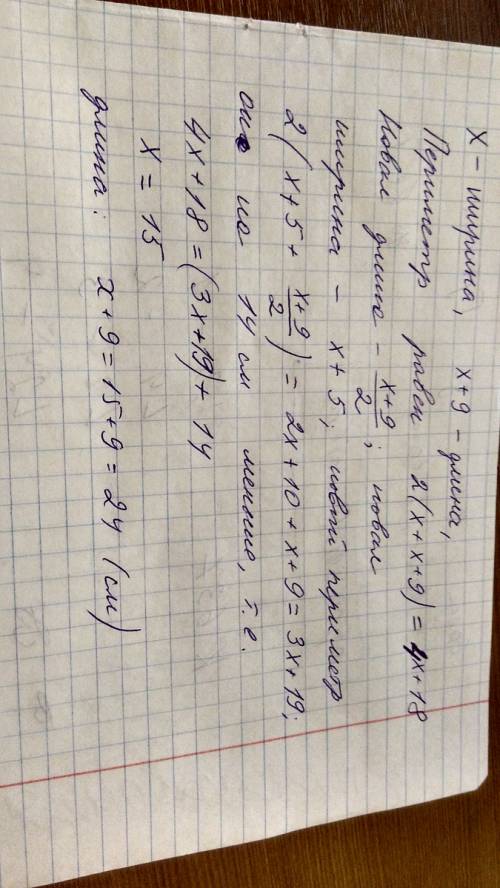 x – ширина, x+9 – длина,
Периметр равен 2(x+x+9) = 4x+18
Новая длина – \frac{x+9}{2}; новая
ширина – x+5; новый периметр
2(x+5+\frac{x+9}{2}) = 2x+10+x+9 = 3x+19;
он на 14 см меньше, т.е.
4x+18 = (3x+19)+14
x = 15
длина: x+9 = 15+9 = 24 (см)